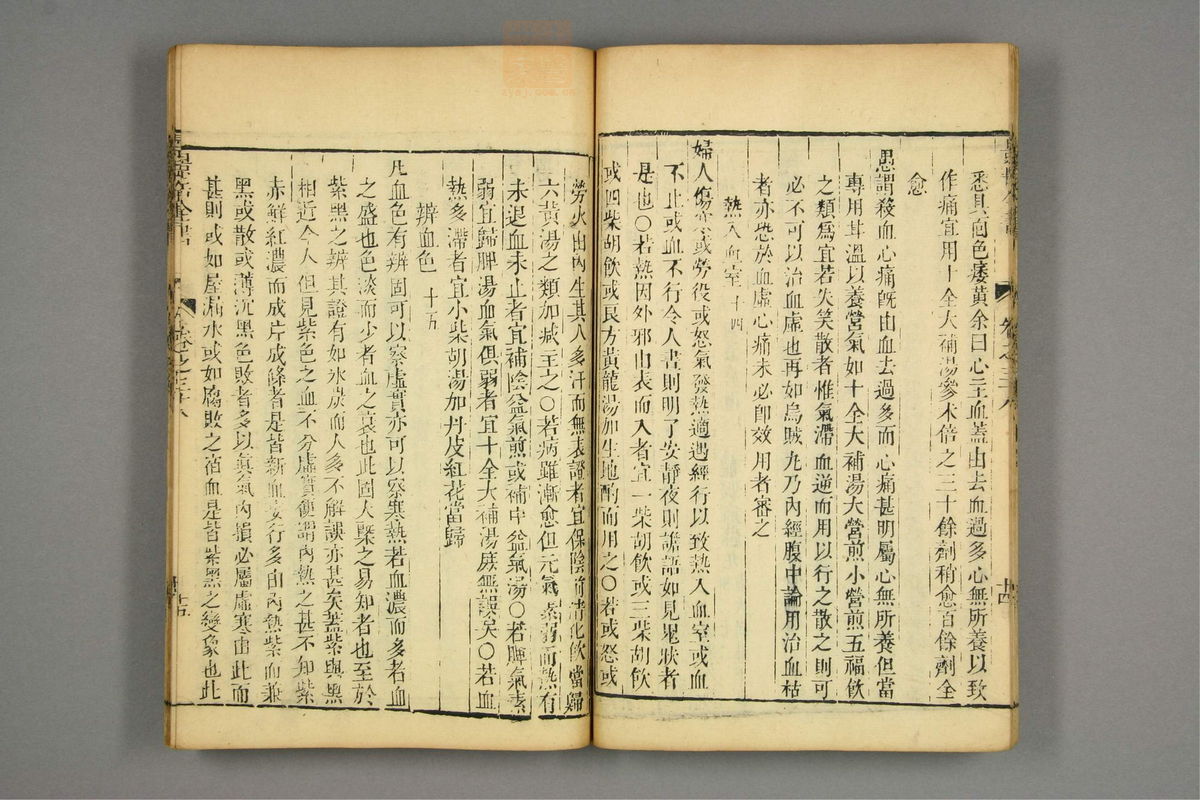 悉具面色痿黄余曰心主血蓋由去血過多心無所養以致
作痛宜用十全大補湯參术倍之三十餘劑稍愈百餘劑全
愈
愚謂殺血心痛既由血去過多而心痛甚明屬心無所養但當
專用甘溫以養營氣如十全大補湯大營煎小營煎五福飲
之類爲宜若失笑散者惟氣滯血逆而用以行之散之則可
必不可以治血虛也再如烏賊丸乃內經腹中論用治血枯
者亦恐於血虛心痛未必卽效用者審之
熱入血室 十四
婦人傷寒或勞役或怒氣發熱適遇經行以致熱入血室或血
不止或血不行令人晝則明了安靜夜則譫語如見鬼狀者
是也○若熱因外邪由表而入者宜一柴胡飲或三柴胡飲
或四柴胡飲或良方黃龍湯加生地酌而用之○若或怒或
勞火由內生其人多汗而無表證者宜保陰煎清化飲當歸
六黃湯之類加減主之○若病雖漸愈但元氣素弱而熱有
未退血未止者宜補陰益氣煎或補中益氣湯○若脾氣素
弱宜歸脾湯血氣俱弱者宜十全大補湯庶無誤矣○若血
熱多滯者宜小柴胡湯加丹皮紅花當歸
辨血色 十五
凡血色有辨固可以察虛實亦可以察寒熱若血濃而多者血
之盛也色淡而少者血之衰也此固大槩之易知者也至於
紫黑之辨其證有如氷炭而人多不解誤亦甚矣蓋紫與黑
相近今人但見紫色之血不分虛實便謂內熱之甚不知紫
赤鮮紅濃而成片成條者是皆新血妄行多由內熱紫而兼
黑或散或薄沉黑色敗者多以眞氣內損必屬虛寒由此而
甚則或如屋漏水或如腐敗之宿血是皆紫黑之變象也此
卷之三十八
十四
卷之三十八
十五